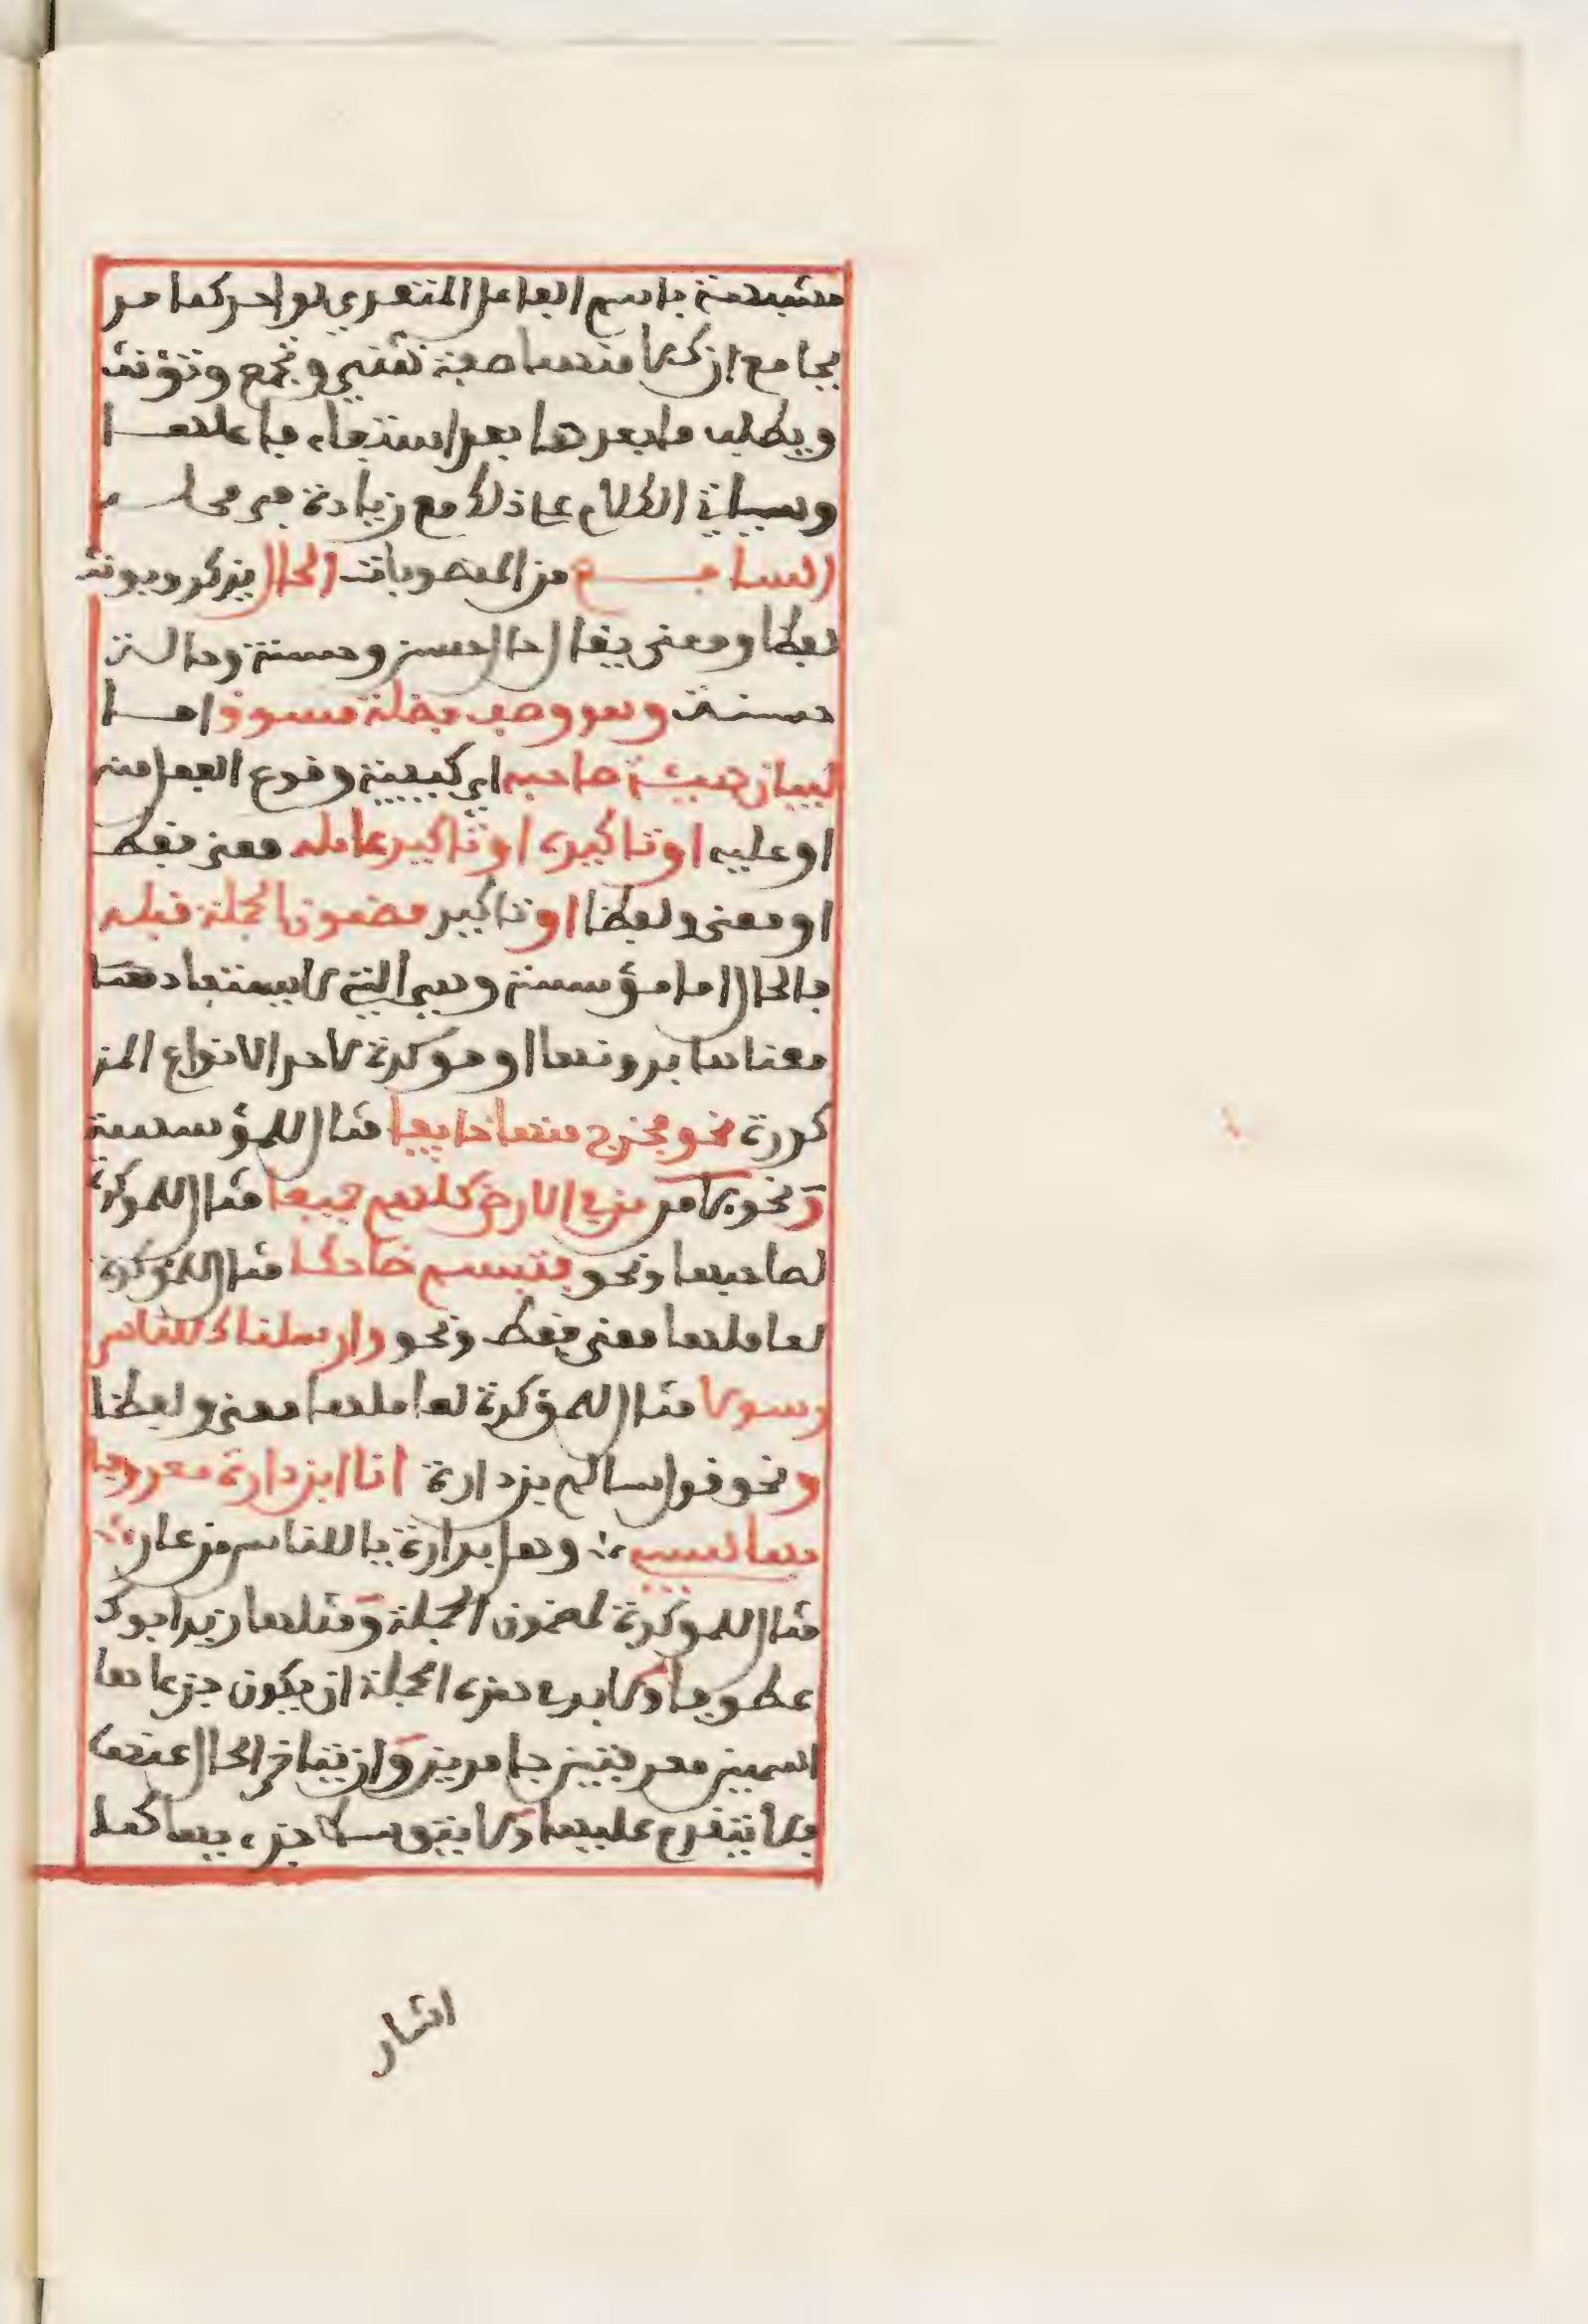 مشبهة باسم الفاعل المتعدي لواحد كما مر
بجامع ان كلا منهما صفة تثنى وتجمع وتؤنث
ويطلب ما بعدها بعد استيفاء فاعلهـا
وسياتي الكلام على ذلك مع زيادة في محلـه
السابـــع من المنصوبات الحال يذكر ويونث
لفظا ومعنى يقال حال حسن وحسنة وحالة
حسنة وهو وصف فضلة مسوق امـا
لبيان هيئة صاحبه اي كيفية وقوع الفعل منه
او عليه او تاكيده او تاكيد عامله معنى فقط
او معنى ولفظا او تاكيد مضمون الجملة قبله
فالحال اما مؤسسة وهي التي لا يستفاد
معناها بدونها او موكدة لاحد الانواع المذ
كورة نحو فخرج منها خايفا مثال للمؤسسة
ونحو لامن من في الارض كلهم جميعا مثال للموكدة
لصاحبها ونحو فتبسم ضاحكا مثال للموكدة
لعاملها معنى فقط ونحو وارسلناك للناس
رسولا مثال للمؤكدة لعاملها معنى ولفظا
ونحو قول سالم بن دارة انا ابن دارة معروفا
بها نسبي ∴ وهل بدارة يا للناس من عار ∴
مثال للموكدة لمضمون الجملة ومثلها زيد ابوك
عطوفا ولا بد في هذه الجملة ان يكون جزءاها
اسمين معرفتين جامدين وان يتاخر الحال عنهما
فلا يتقدم عليهما ولا يتوسط جزءيها كما
اشار